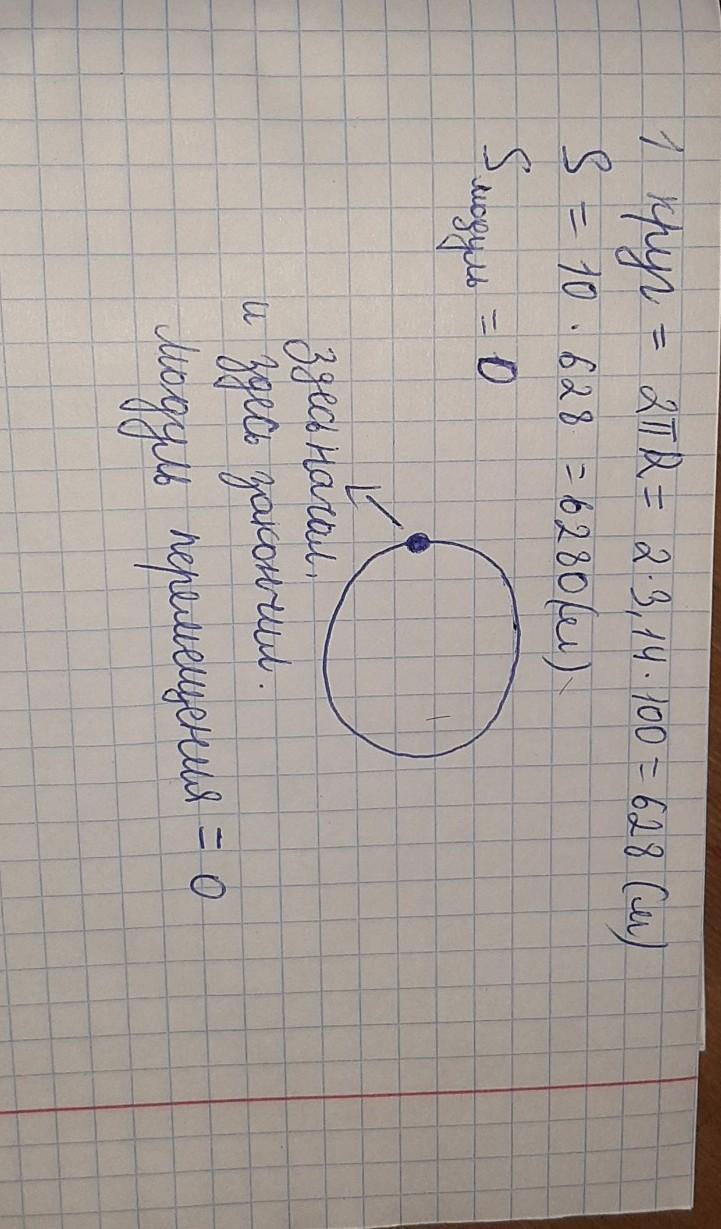 1 круг = 2πR = 2·3,14·100 = 628 (м)
S = 10·628 = 6280(м)
Sмодуль = 0
Здесь начал,
и здесь закончил.
Модуль перемещения = 0